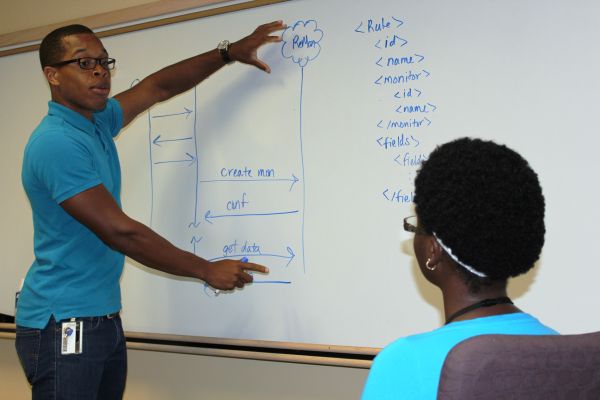 create mon
conf
get data
<Rule>
<id>
<name>
<monitor>
<id>
<name>
</monitor>
<fields>
<field
</field